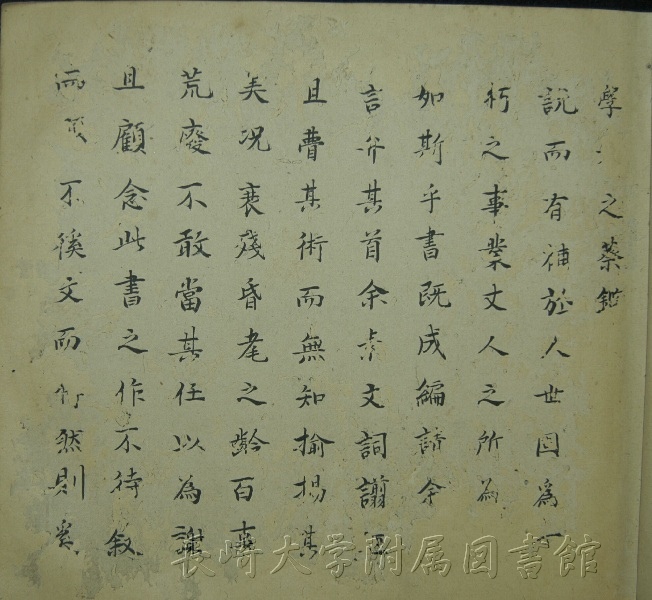 學之蔡鑑
説而有補於人世固為不
朽之事業丈人之所為
如斯乎書既成編請余
言弁其首余素文詞謝陋
且瞢其術而無知揄揚其
美况衰殘昏耄之齡百事
荒廢不敢當其任以為謝
且顧念此書之作不待叙
而不徯文而行然則奚
長崎大学附属図書館